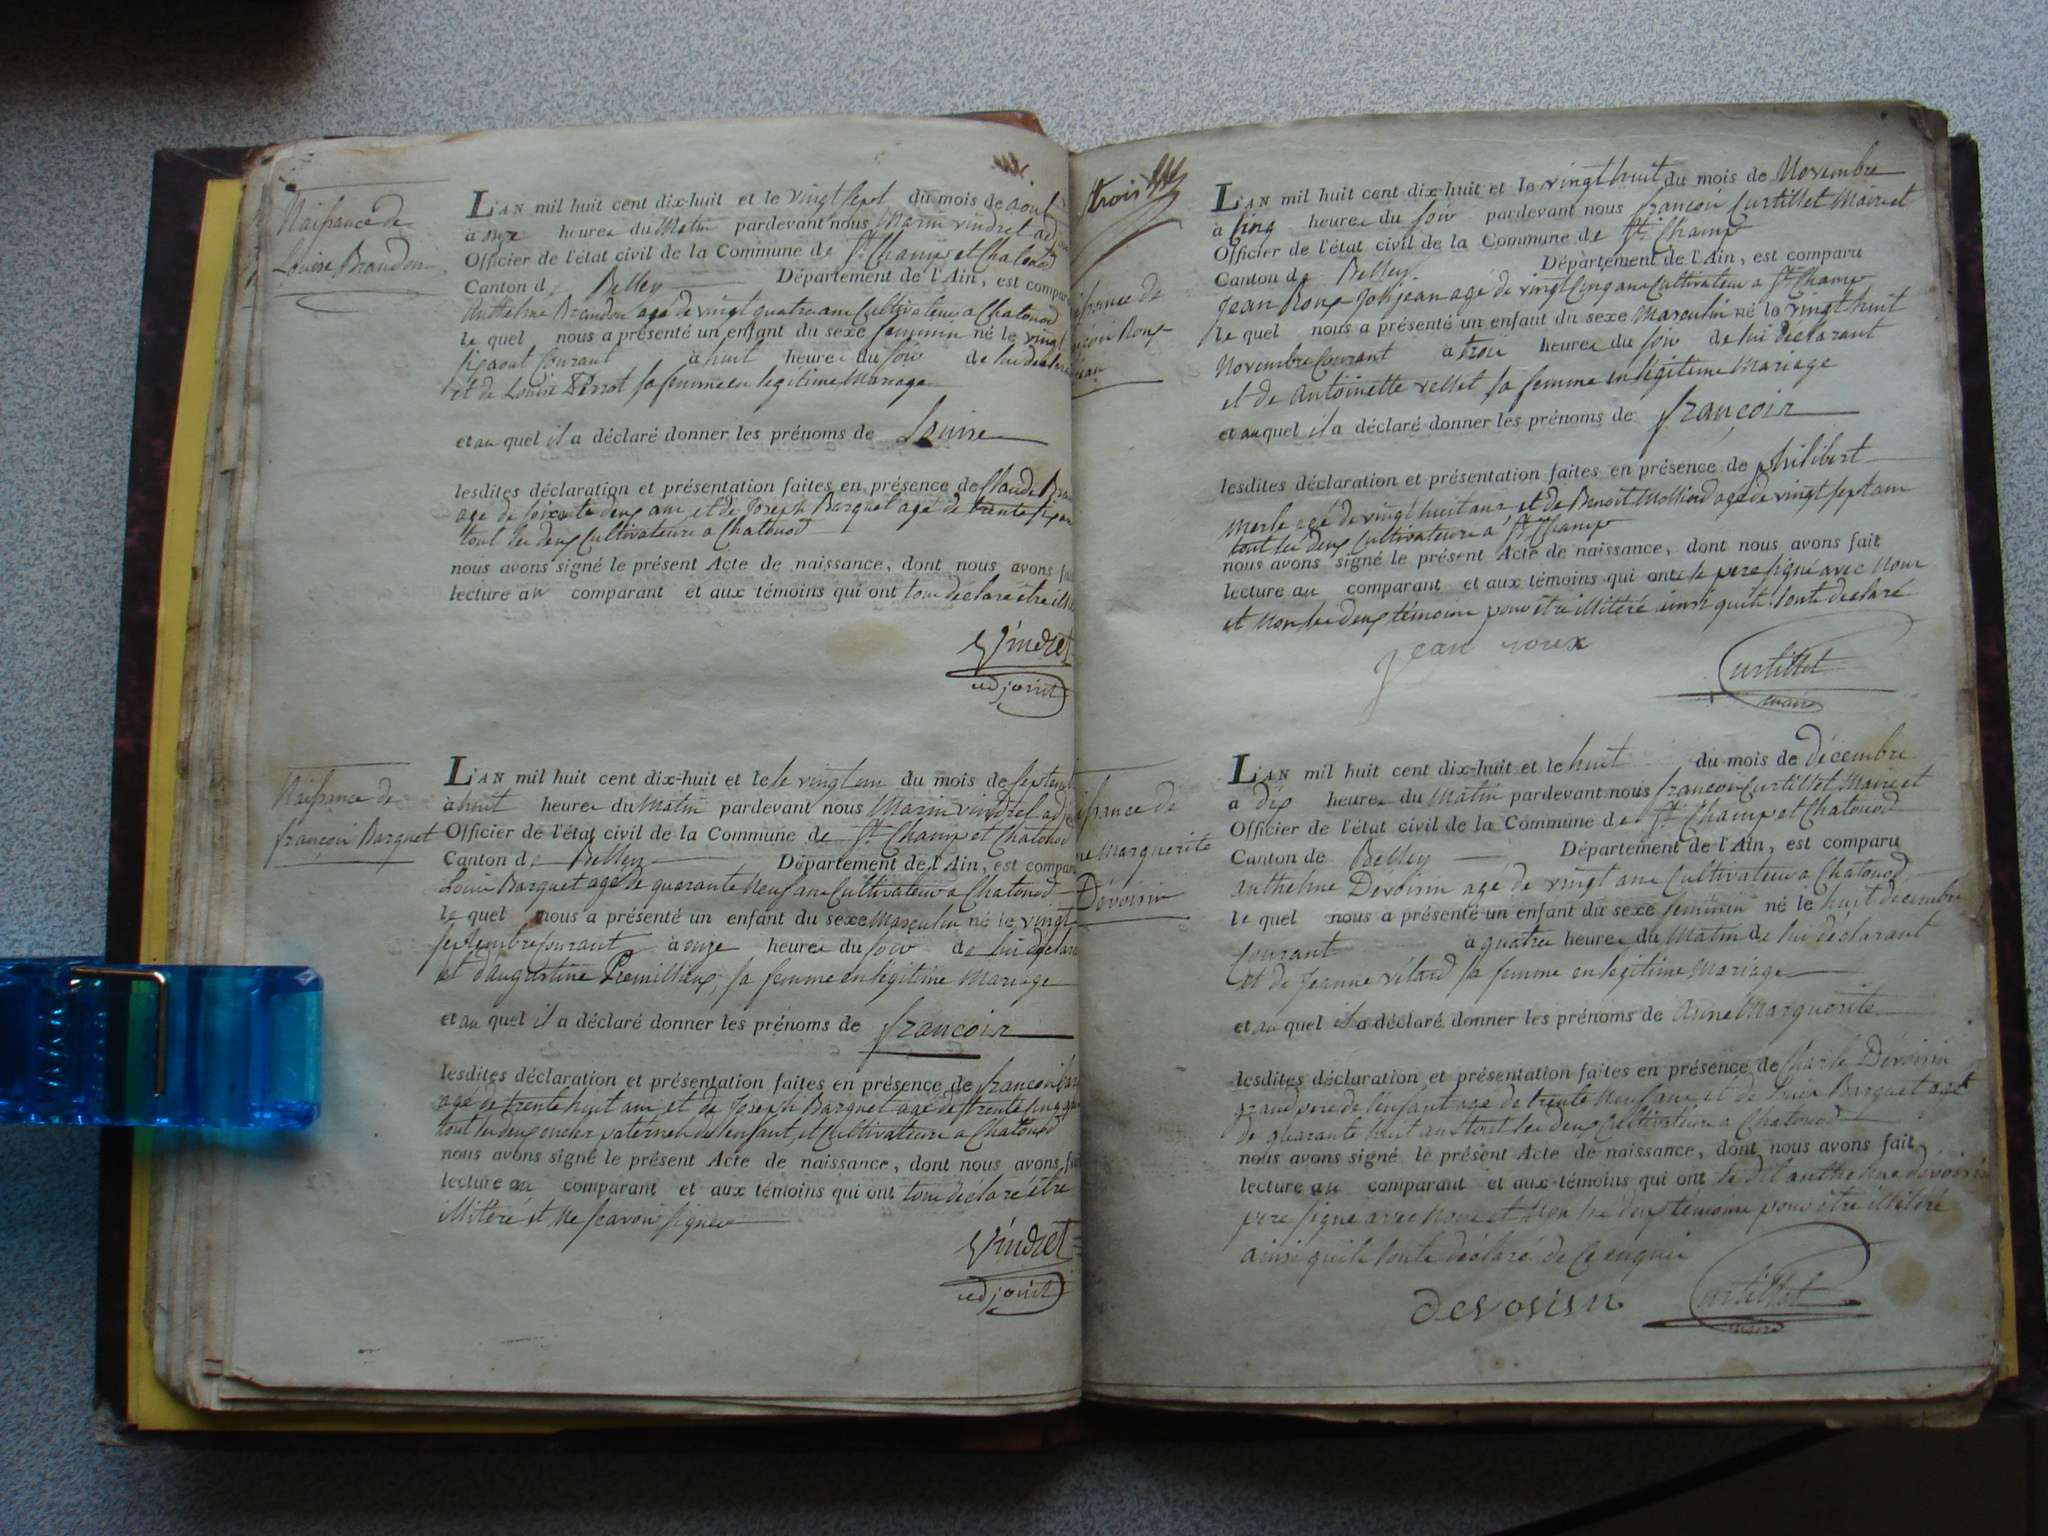 Naissance de
Louise Brandon
L'AN mil huit cent dix-huit et le vingt sept du mois de aout
à onze heures du Matin pardevant nous Marin vindret ad
Officier de l'état civil de la Commune de St. Champ et Chatonod
Canton de Belley Département de l'Ain, est comparu
Anthelme Brandon agé de vingt quatre ans Cultivateur a Chatonod
le quel nous a présenté un enfant du sexe feminin né le vingt
six aout Courant à huit heures du soir de lui déclarant
et de Louise Perrot sa femme en legitime Mariage
et au quel il a déclaré donner les prénoms de Louise
lesdites déclaration et présentation faites en présence de Claude
agé de soixante deux ans et de Joseph Barquet agé de trente six ans
tout les deux Cultivateurs a Chatonod
nous avons signé le présent Acte de naissance, dont nous avons fait
lecture au comparant et aux témoins qui ont tous déclaré être
Vindret
adjoint
Naissance de
françois Barquet
L'AN mil huit cent dix-huit et le le vingt un du mois de septembre
à huit heures du Matin pardevant nous Marin vindret adj
Officier de l'état civil de la Commune de St. Champ et Chatonod
Canton de Belley Département de l'Ain, est comparu
Louis Barquet agé de quarante neuf ans Cultivateur a Chatonod
le quel nous a présenté un enfant du sexe Masculin né le vingt
septembre Courant à onze heures du soir de lui déclarant
et d'augustine Premillieux, sa femme en légitime Mariage
et au quel il a déclaré donner les prénoms de françois
lesdites déclaration et présentation faites en présence de francois
agé de trente huit ans et de Joseph Barquet agé de trente cinq ans
tout les deux oncles paternels de l'enfant, et Cultivateurs a Chatonod
nous avons signé le présent Acte de naissance, dont nous avons fait
lecture au comparant et aux témoins qui ont tous déclaré être
illitéré et ne scavoir signer
Vindret
adjoint
trois
L'AN mil huit cent dix-huit et le vingt huit du mois de Novembre
à cinq heures du soir pardevant nous françois Curtillet Maire et
Officier de l'état civil de la Commune de St. Champ
Canton de Belley. Département de l'Ain, est comparu
Jean Roux agé de vingt cinq ans Cultivateur a St. Champ
le quel nous a présenté un enfant du sexe Masculin né le vingt huit
Novembre Courant à trois heures du soir de lui déclarant
et de Antoinette vellet sa femme en légitime Mariage
et au quel il a déclaré donner les prénoms de françois
lesdites déclaration et présentation faites en présence de philibert
Merle agé de vingt huit ans et de Benoit Molliard agé de vingt sept ans
tout les deux Cultivateurs a St. Champ
nous avons signé le présent Acte de naissance, dont nous avons fait
lecture au comparant et aux témoins qui ont le pere signé avec Nous
et Non les deux témoins pour être illitéré ainsi quils lont déclaré
jean roux
Curtillet
maire
Marguerite
Dévoisin
L'AN mil huit cent dix-huit et le huit du mois de décembre
à dix heures du Matin pardevant nous francois Curtillet Maire et
Officier de l'état civil de la Commune de St. Champ et Chatonod
Canton de Belley Département de l'Ain, est comparu
anthelme Dévoisin agé de vingt ans Cultivateur a Chatonod
le quel nous a présenté un enfant du sexe feminin né le huit decembre
Courant à quatre heures du Matin de lui déclarant
et de Jeanne vilard sa femme en legitime Mariage
et au quel il a déclaré donner les prénoms de Anne Marguerite
lesdites déclaration et présentation faites en présence de Charle Dévoisin
grand pere de l'enfant agé de trente Neuf ans et de Louis Barquet agé
de quarante huit ans tout les deux Cultivateurs a Chatonod
nous avons signé le présent Acte de naissance, dont nous avons fait
lecture au comparant et aux témoins qui ont le dit anthelme dévoisin
pere signé avec Nous et Non les deux témoins pour être illitéré
ainsi quils lont déclaré de ce enquis
devoisin
Curtillet
maire